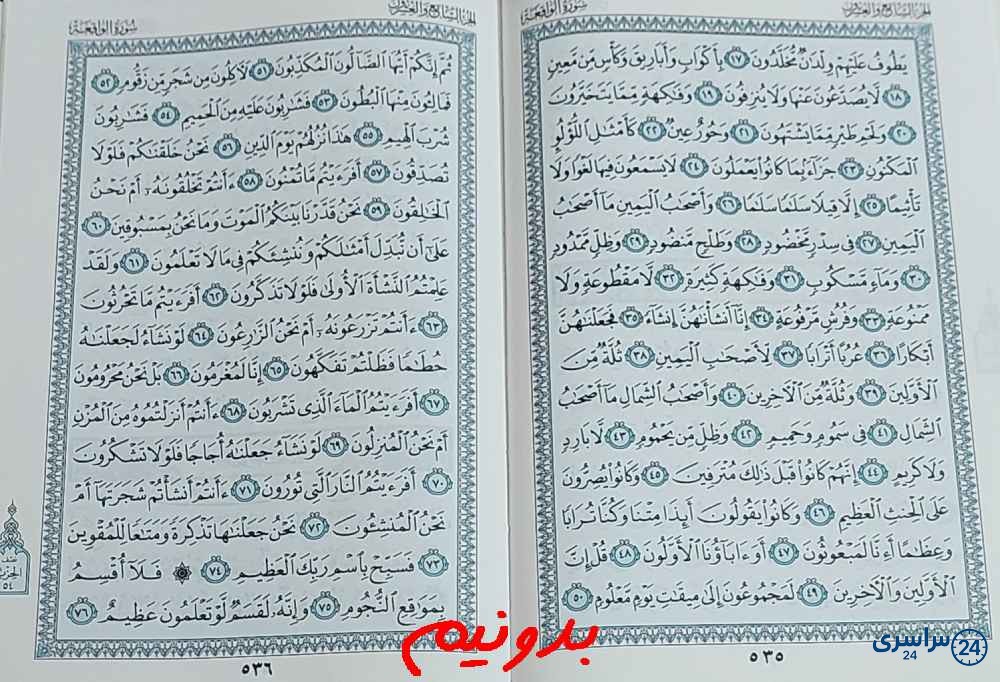 الجزء السابع والعشرون
سورة الواقعة
يَطُوفُ عَلَيْهِمْ وِلْدَٰنٌ مُّخَلَّدُونَ ١٧ بِأَكْوَابٍ وَأَبَارِيقَ وَكَأْسٍ مِّن مَّعِينٍ
١٨ لَّا يُصَدَّعُونَ عَنْهَا وَلَا يُنزِفُونَ ١٩ وَفَٰكِهَةٍ مِّمَّا يَتَخَيَّرُونَ
٢٠ وَلَحْمِ طَيْرٍ مِّمَّا يَشْتَهُونَ ٢١ وَحُورٌ عِينٌ ٢٢ كَأَمْثَٰلِ اللُّؤْلُوِٕ
الْمَكْنُونِ ٢٣ جَزَآءًۢ بِمَا كَانُوا۟ يَعْمَلُونَ ٢٤ لَا يَسْمَعُونَ فِيهَا لَغْوًا وَلَا
تَأْثِيمًا ٢٥ إِلَّا قِيلًا سَلَٰمًا سَلَٰمًا ٢٦ وَأَصْحَٰبُ الْيَمِينِ مَآ أَصْحَٰبُ
الْيَمِينِ ٢٧ فِي سِدْرٍ مَّخْضُودٍ ٢٨ وَطَلْحٍ مَّنضُودٍ ٢٩ وَظِلٍّ مَّمْدُودٍ
٣٠ وَمَآءٍ مَّسْكُوبٍ ٣١ وَفَٰكِهَةٍ كَثِيرَةٍ ٣٢ لَّا مَقْطُوعَةٍ وَلَا
مَمْنُوعَةٍ ٣٣ وَفُرُشٍ مَّرْفُوعَةٍ ٣٤ إِنَّآ أَنشَأْنَٰهُنَّ إِنشَآءً ٣٥ فَجَعَلْنَٰهُنَّ
أَبْكَارًا ٣٦ عُرُبًا أَتْرَابًا ٣٧ لِّأَصْحَٰبِ الْيَمِينِ ٣٨ ثُلَّةٌ مِّنَ
الْأَوَّلِينَ ٣٩ وَثُلَّةٌ مِّنَ الْآخِرِينَ ٤٠ وَأَصْحَٰبُ الشِّمَالِ مَآ أَصْحَٰبُ
الشِّمَالِ ٤١ فِي سَمُومٍ وَحَمِيمٍ ٤٢ وَظِلٍّ مِّن يَحْمُومٍ ٤٣ لَّا بَارِدٍ
وَلَا كَرِيمٍ ٤٤ إِنَّهُمْ كَانُوا۟ قَبْلَ ذَٰلِكَ مُتْرَفِينَ ٤٥ وَكَانُوا۟ يُصِرُّونَ
عَلَى الْحِنثِ الْعَظِيمِ ٤٦ وَكَانُوا۟ يَقُولُونَ أَئِذَا مِتْنَا وَكُنَّا تُرَابًا
وَعِظَٰمًا أَءِنَّا لَمَبْعُوثُونَ ٤٧ أَوَءَابَآؤُنَا الْأَوَّلُونَ ٤٨ قُلْ إِنَّ
الْأَوَّلِينَ وَالْآخِرِينَ ٤٩ لَمَجْمُوعُونَ إِلَىٰ مِيقَٰتِ يَوْمٍ مَّعْلُومٍ ٥٠
٥٣٥
الجزء السابع والعشرون
سورة الواقعة
ثُمَّ إِنَّكُمْ أَيُّهَا الضَّآلُّونَ الْمُكَذِّبُونَ ٥١ لَآكِلُونَ مِن شَجَرٍ مِّن زَقُّومٍ ٥٢
فَمَالِـُٔونَ مِنْهَا الْبُطُونَ ٥٣ فَشَٰرِبُونَ عَلَيْهِ مِنَ الْحَمِيمِ ٥٤ فَشَٰرِبُونَ
شُرْبَ الْهِيمِ ٥٥ هَٰذَا نُزُلُهُمْ يَوْمَ الدِّينِ ٥٦ نَحْنُ خَلَقْنَٰكُمْ فَلَوْلَا
تُصَدِّقُونَ ٥٧ أَفَرَءَيْتُم مَّا تُمْنُونَ ٥٨ ءَأَنتُمْ تَخْلُقُونَهُۥٓ أَمْ نَحْنُ
الْخَٰلِقُونَ ٥٩ نَحْنُ قَدَّرْنَا بَيْنَكُمُ الْمَوْتَ وَمَا نَحْنُ بِمَسْبُوقِينَ ٦٠
عَلَىٰٓ أَن نُّبَدِّلَ أَمْثَٰلَكُمْ وَنُنشِئَكُمْ فِي مَا لَا تَعْلَمُونَ ٦١ وَلَقَدْ
عَلِمْتُمُ النَّشْأَةَ الْأُولَىٰ فَلَوْلَا تَذَكَّرُونَ ٦٢ أَفَرَءَيْتُم مَّا تَحْرُثُونَ
٦٣ ءَأَنتُمْ تَزْرَعُونَهُۥٓ أَمْ نَحْنُ الزَّٰرِعُونَ ٦٤ لَوْ نَشَآءُ لَجَعَلْنَٰهُ
حُطَٰمًا فَظَلْتُمْ تَفَكَّهُونَ ٦٥ إِنَّا لَمُغْرَمُونَ ٦٦ بَلْ نَحْنُ مَحْرُومُونَ
٦٧ أَفَرَءَيْتُمُ الْمَآءَ الَّذِي تَشْرَبُونَ ٦٨ ءَأَنتُمْ أَنزَلْتُمُوهُ مِنَ الْمُزْنِ
أَمْ نَحْنُ الْمُنزِلُونَ ٦٩ لَوْ نَشَآءُ جَعَلْنَٰهُ أُجَاجًا فَلَوْلَا تَشْكُرُونَ
٧٠ أَفَرَءَيْتُمُ النَّارَ الَّتِي تُورُونَ ٧١ ءَأَنتُمْ أَنشَأْتُمْ شَجَرَتَهَآ أَمْ
نَحْنُ الْمُنشِـُٔونَ ٧٢ نَحْنُ جَعَلْنَٰهَا تَذْكِرَةً وَمَتَٰعًا لِّلْمُقْوِينَ
٧٣ فَسَبِّحْ بِاسْمِ رَبِّكَ الْعَظِيمِ ٧٤ ۞ فَلَآ أُقْسِمُ
بِمَوَٰقِعِ النُّجُومِ ٧٥ وَإِنَّهُۥ لَقَسَمٌ لَّوْ تَعْلَمُونَ عَظِيمٌ ٧٦
٥٣٦
الحزب
٥٤
بدونیم
سراسری
24
24